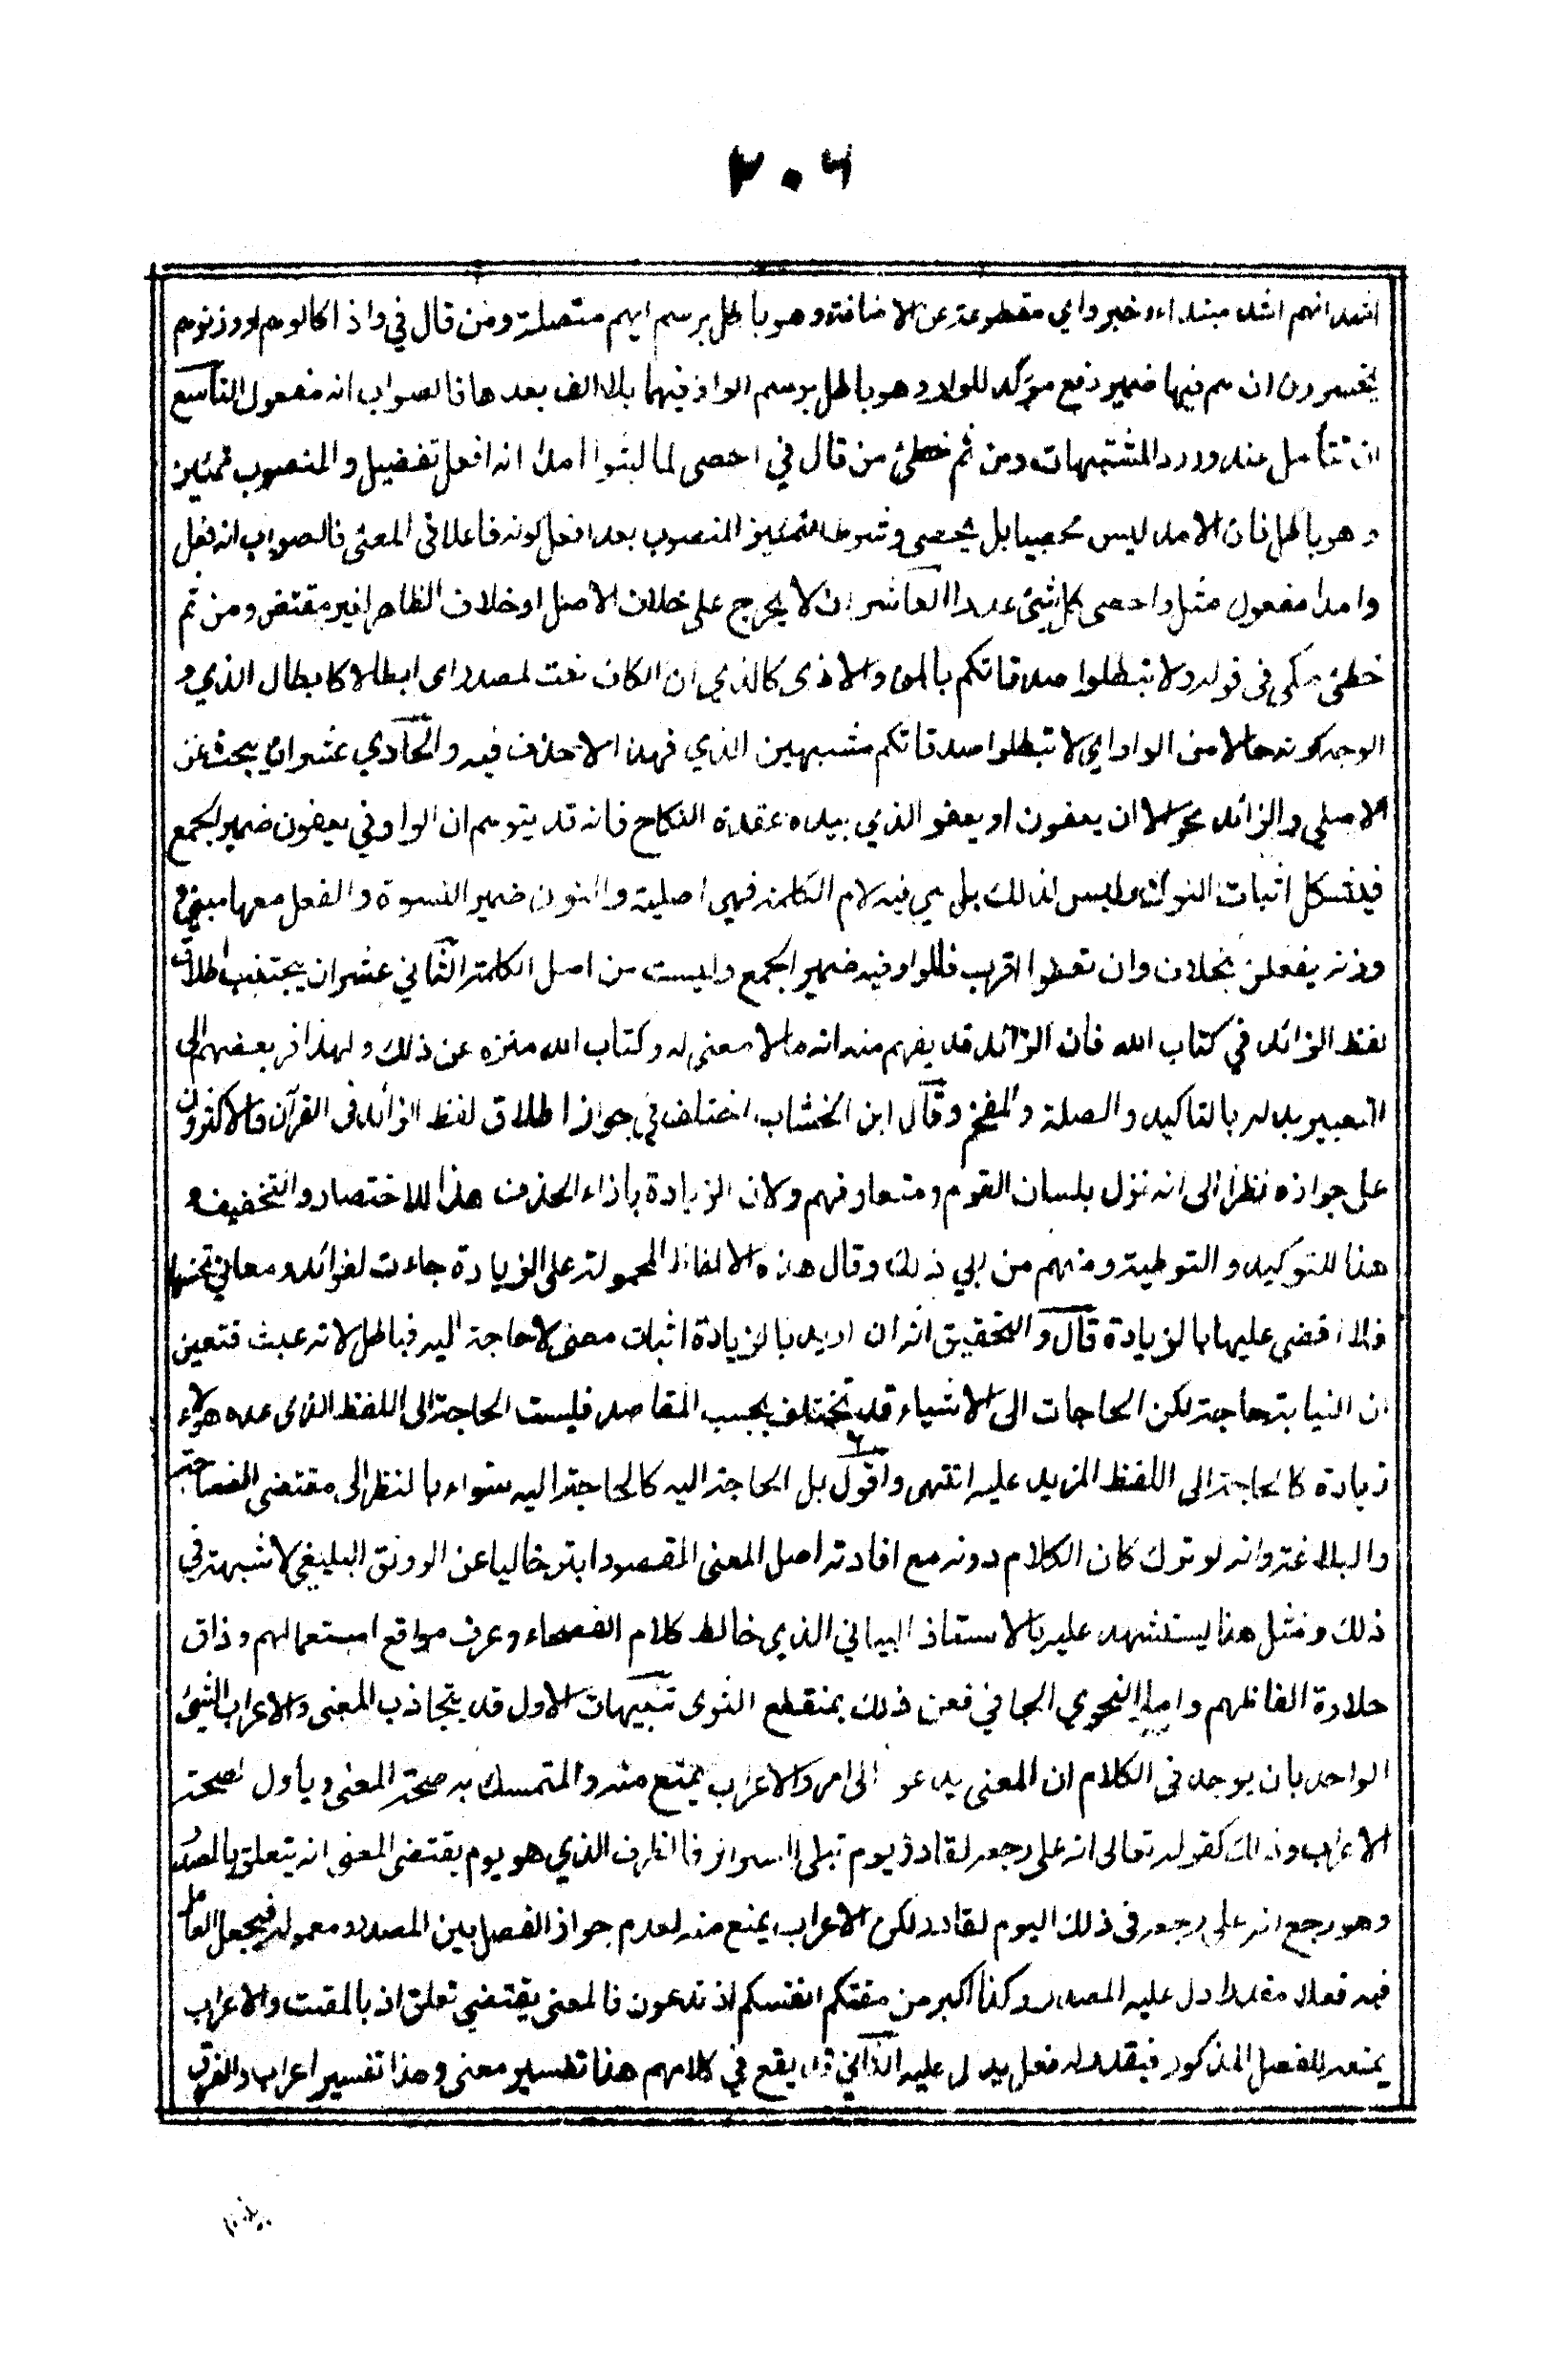 ٢٠٦
اشد انهم اشد مبتداء وخبر واي مقطوعة عن الاضافة وهو باطل برسم ايهم متصلة ومن قال في واذا كالوهم او وزنوهم
يخسرون ان هم فيها ضمير رفع مؤكد للواو وهو باطل برسم الواو فيهما بلا الف بعدها فالصواب انه مفعول التاسع
ان تتأمل عند ورود المشتبهات ومن ثم خطئ من قال في احصى لما لبثوا امدا انه افعل تفضيل والمنصوب تمييز
وهو باطل فان الامد ليس محصيا بل يحصى وشرط التمييز المنصوب بعد افعل كونه فاعلا في المعنى فالصواب انه فعل
وامدا مفعول مثل واحصى كل شئ عددا العاشر ان لا يخرج على خلاف الاصل او خلاف الظاهر لغير مقتض ومن ثم
خطئ مكي في قوله ولا تبطلوا صدقاتكم بالمن والاذى كالذي ان الكاف نعت لمصدر اى ابطالا كابطال الذي و
الوجه كونه حالا من الواو اي لا تبطلوا صدقاتكم مشبهين الذي فهذا لا حذف فيه والحادي عشر ان يبحث عن
الاصلي والزائد نحو الا ان يعفون او يعفو الذي بيده عقدة النكاح فانه قد يتوهم ان الواو في يعفون ضمير الجمع
فيشكل اثبات النون وليس كذلك بل هي فيه لام الكلمة فهي اصلية والنون ضمير النسوة والفعل معها مبني و
وزنه يفعلن بخلاف وان تعفوا اقرب فالواو فيه ضمير الجمع وليست من اصل الكلمة الثاني عشر ان يجتنب اطلاق
لفظ الزائد في كتاب الله فان الزائد قد يفهم منه انه ما لا معنى له وكتاب الله منزه عن ذلك ولهذا فر بعضهم الى
التعبير بدله بالتاكيد والصلة والمقحم وقال ابن الخشاب اختلف في جواز اطلاق لفظ الزائد فى القرآن فالاكثرون
على جوازه نظرا الى انه نزل بلسان القوم ومتعارفهم ولان الزيادة بازاء الحذف هذا للاختصار والتخفيف و
هذا للتوكيد والتوطية ومنهم من ابي ذلك وقال هذه الالفاظ المحمولة على الزيادة جاءت لفوائد ومعاني تخصها
فلا اقضي عليها بالزيادة قال والتحقيق انه ان اريد بالزيادة اثبات معنى لا حاجة اليه فباطل لانه عبث فتعين
ان الينا به حاجة لكن الحاجات الى الاشياء قد تختلف بحسب المقاصد فليست الحاجة الى اللفظ الذى عده هؤلاء
زيادة كالحاجة الى اللفظ المزيد عليه انتهى واقول بل الحاجة اليه كالحاجة اليه سواء بالنظر الى مقتضى الفصاحة
والبلاغة وانه لو ترك كان الكلام دونه مع افادته اصل المعنى المقصود ابتر خاليا عن الرونق البليغي لا شبهة في
ذلك ومثل هذا يستشهد عليه بالاستاذ البياني الذي خالط كلام الفصحاء وعرف مواقع استعمالهم وذاق
حلاوة الفاظهم واما النحوي الجافي فعن ذلك بمنقطع الثرى تنبيهات الاول قد يتجاذب المعنى والاعراب الشئ
الواحد بان يوجد فى الكلام ان المعنى يدعو الى امر والاعراب يمنع منه والمتمسك به صحة المعنى ويأول لصحة
الاعراب وذلك كقوله تعالى انه على رجعه لقادر يوم تبلى السرائر فالظرف الذي هو يوم يقتضى المعنى انه يتعلق بالمصدر
وهو رجع انه على رجعه فى ذلك اليوم لقادر لكن الاعراب يمنع منه لعدم جواز الفصل بين المصدر ومعموله فيجعل العامل
فيه فعلا مقدرا دل عليه المصدر وكذا اكبر من مقتكم انفسكم اذ تدعون فالمعنى يقتضي تعلق اذ بالمقت والاعراب
يمنعه للفصل المذكور فيقدر له فعل يدل عليه الثاني قد يقع في كلامهم هذا تفسير معنى وهذا تفسير اعراب والفرق